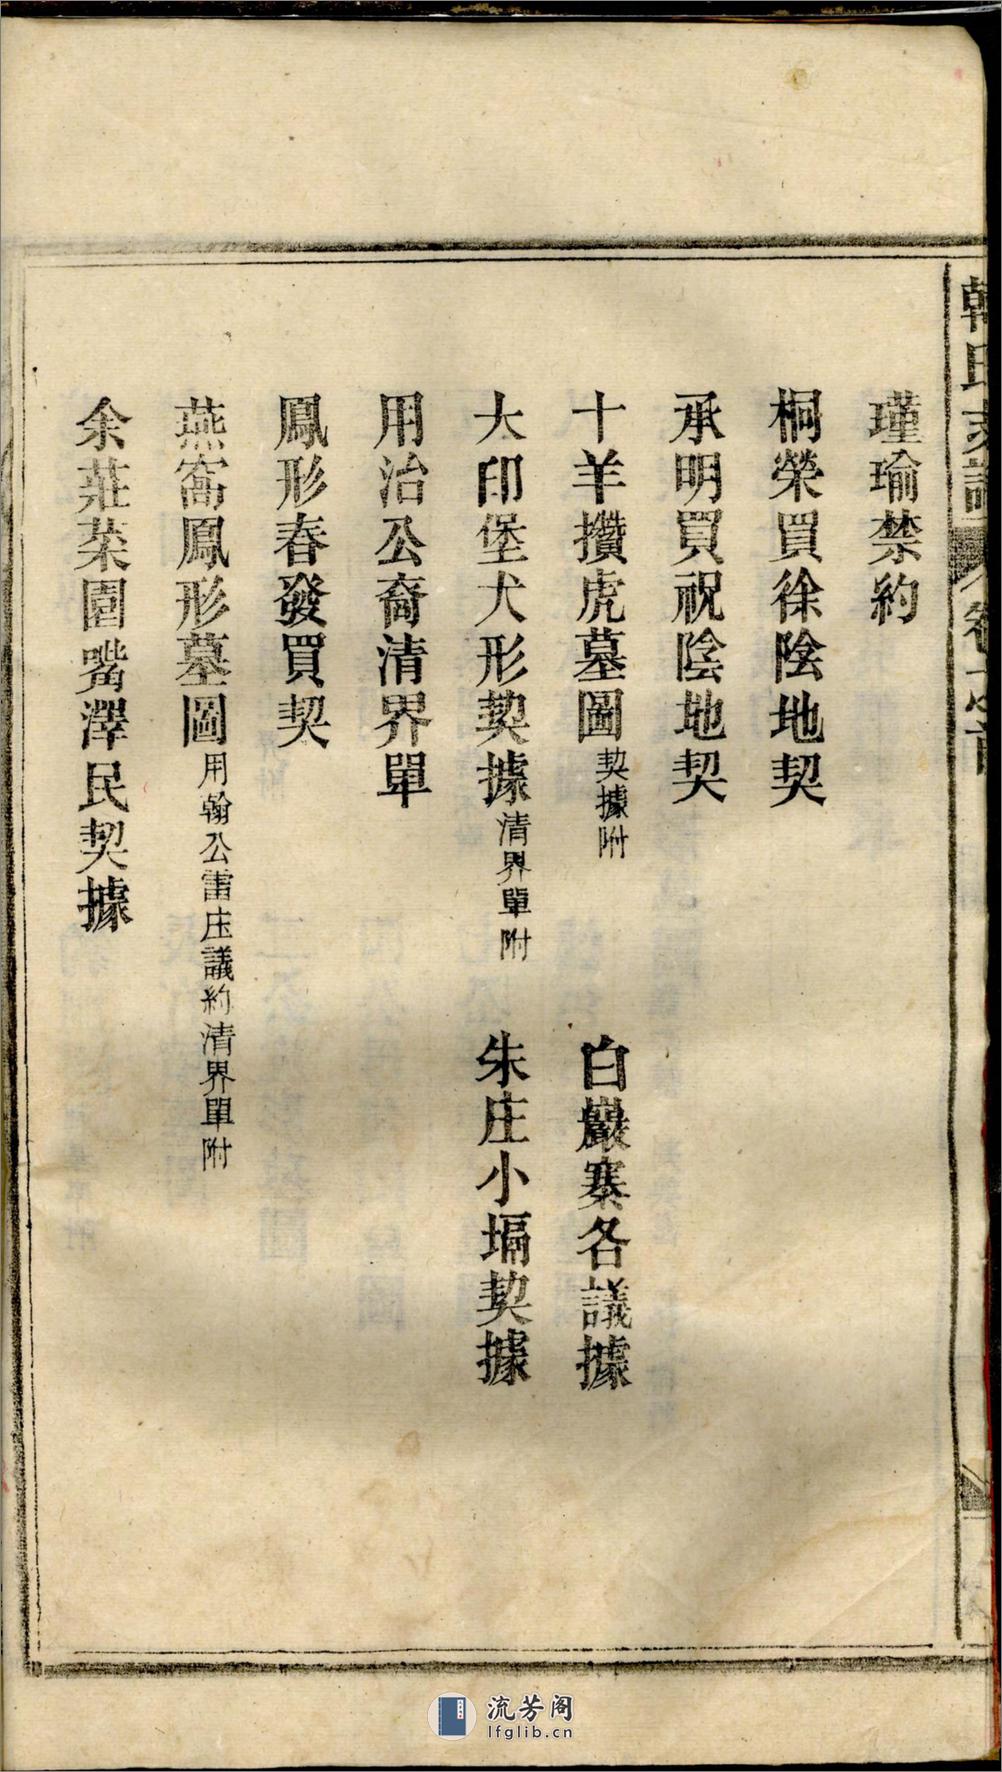 瑾瑜禁約
桐榮買徐陰地契
承明買祝陰地契
十羊攢虎墓圖契據附 白巖寨各議據
大印堡犬形契據清界單附 朱庄小塥契據
用治公裔清界單
鳳形春發買契
燕窩鳳形墓圖用翰公雷庄議約清界單附
余莊菜園嘴澤民契據
流芳阁
lfglib.cn